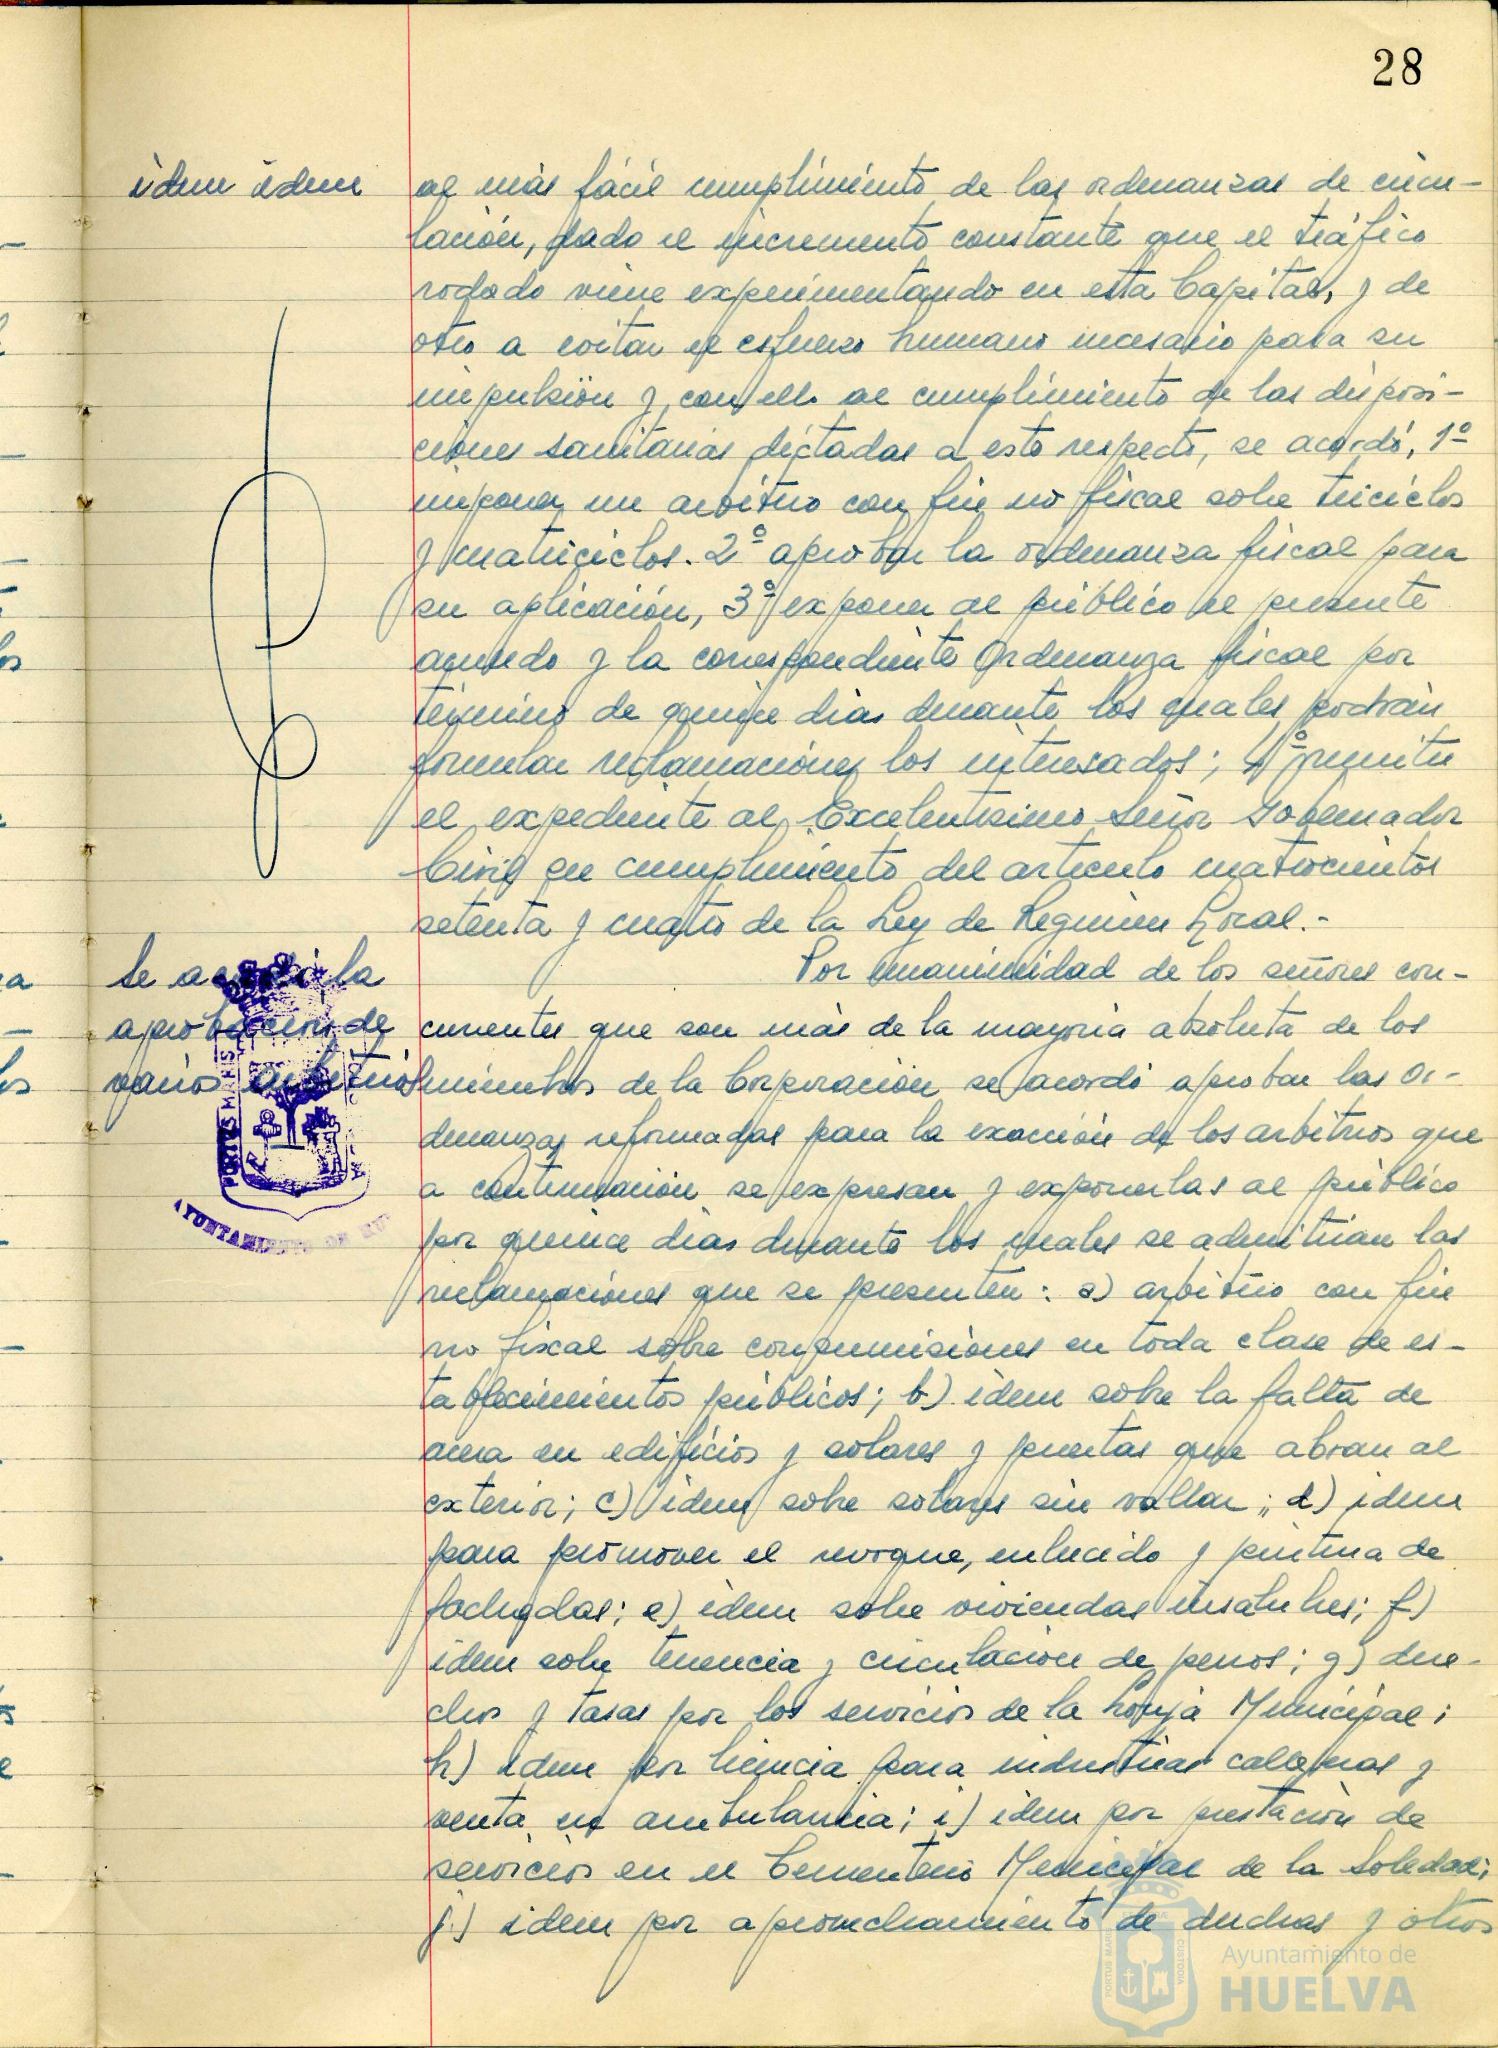 28
idem idem
al más fácil cumplimiento de las ordenanzas de circu-
lación, dado el incremento constante que el tráfico
rodado viene experimentando en esta Capital, y de
otro a evitar el esfuerzo humano necesario para su
impulsión y con ello al cumplimiento de las disposi-
ciones sanitarias dictadas a este respecto, se acordó, 1º
imponer un arbitrio con fin no fiscal sobre triciclos
y matriciclos. 2º aprobar la ordenanza fiscal para
su aplicación, 3º exponer al público el presente
acuerdo y la correspondiente Ordenanza fiscal por
término de quince días durante los quales podrán
formular reclamaciones los interesados; 4º remitir
el expediente al Excelentísimo Señor Gobernador
Civil en cumplimiento del artículo cuatrocientos
setenta y cuatro de la Ley de Regimen Local.-
Se acordó la
aprobación de
varios arbitrios
Por unanimidad de los señores con-
currentes que son más de la mayoria absoluta de los
miembros de la Corporación se acordó aprobar las Or-
denanzas reformadas para la exacción de los arbitrios que
a continuación se expresan y exponerlas al público
por quince dias durante los cuales se admitirian las
reclamaciones que se presenten: a) arbitrio con fin
no fiscal sobre consumisiones en toda clase de es-
tablecimientos públicos; b) idem sobre la falta de
acera en edificios y solares y puertas que abran al
exterior; c) idem sobre solares sin vallar; d) idem
para promover el revoque, enlucido y pintura de
fachadas; e) idem sobre viviendas insalubres; f)
idem sobre tenencia y circulación de perros; g) dere-
chos y tasas por los servicios de la Lonja Municipal;
h) idem por licencia para industrias callejeras y
venta en ambulancia; i) idem por prestación de
servicios en el Cementerio Municipal de la Soledad;
j) idem por aprovechamiento de duchas y otros
PORTUS MARIS
AYUNTAMIENTO DE HU
PORTUS MARIS
CUSTODIA
Ayuntamiento de
HUELVA